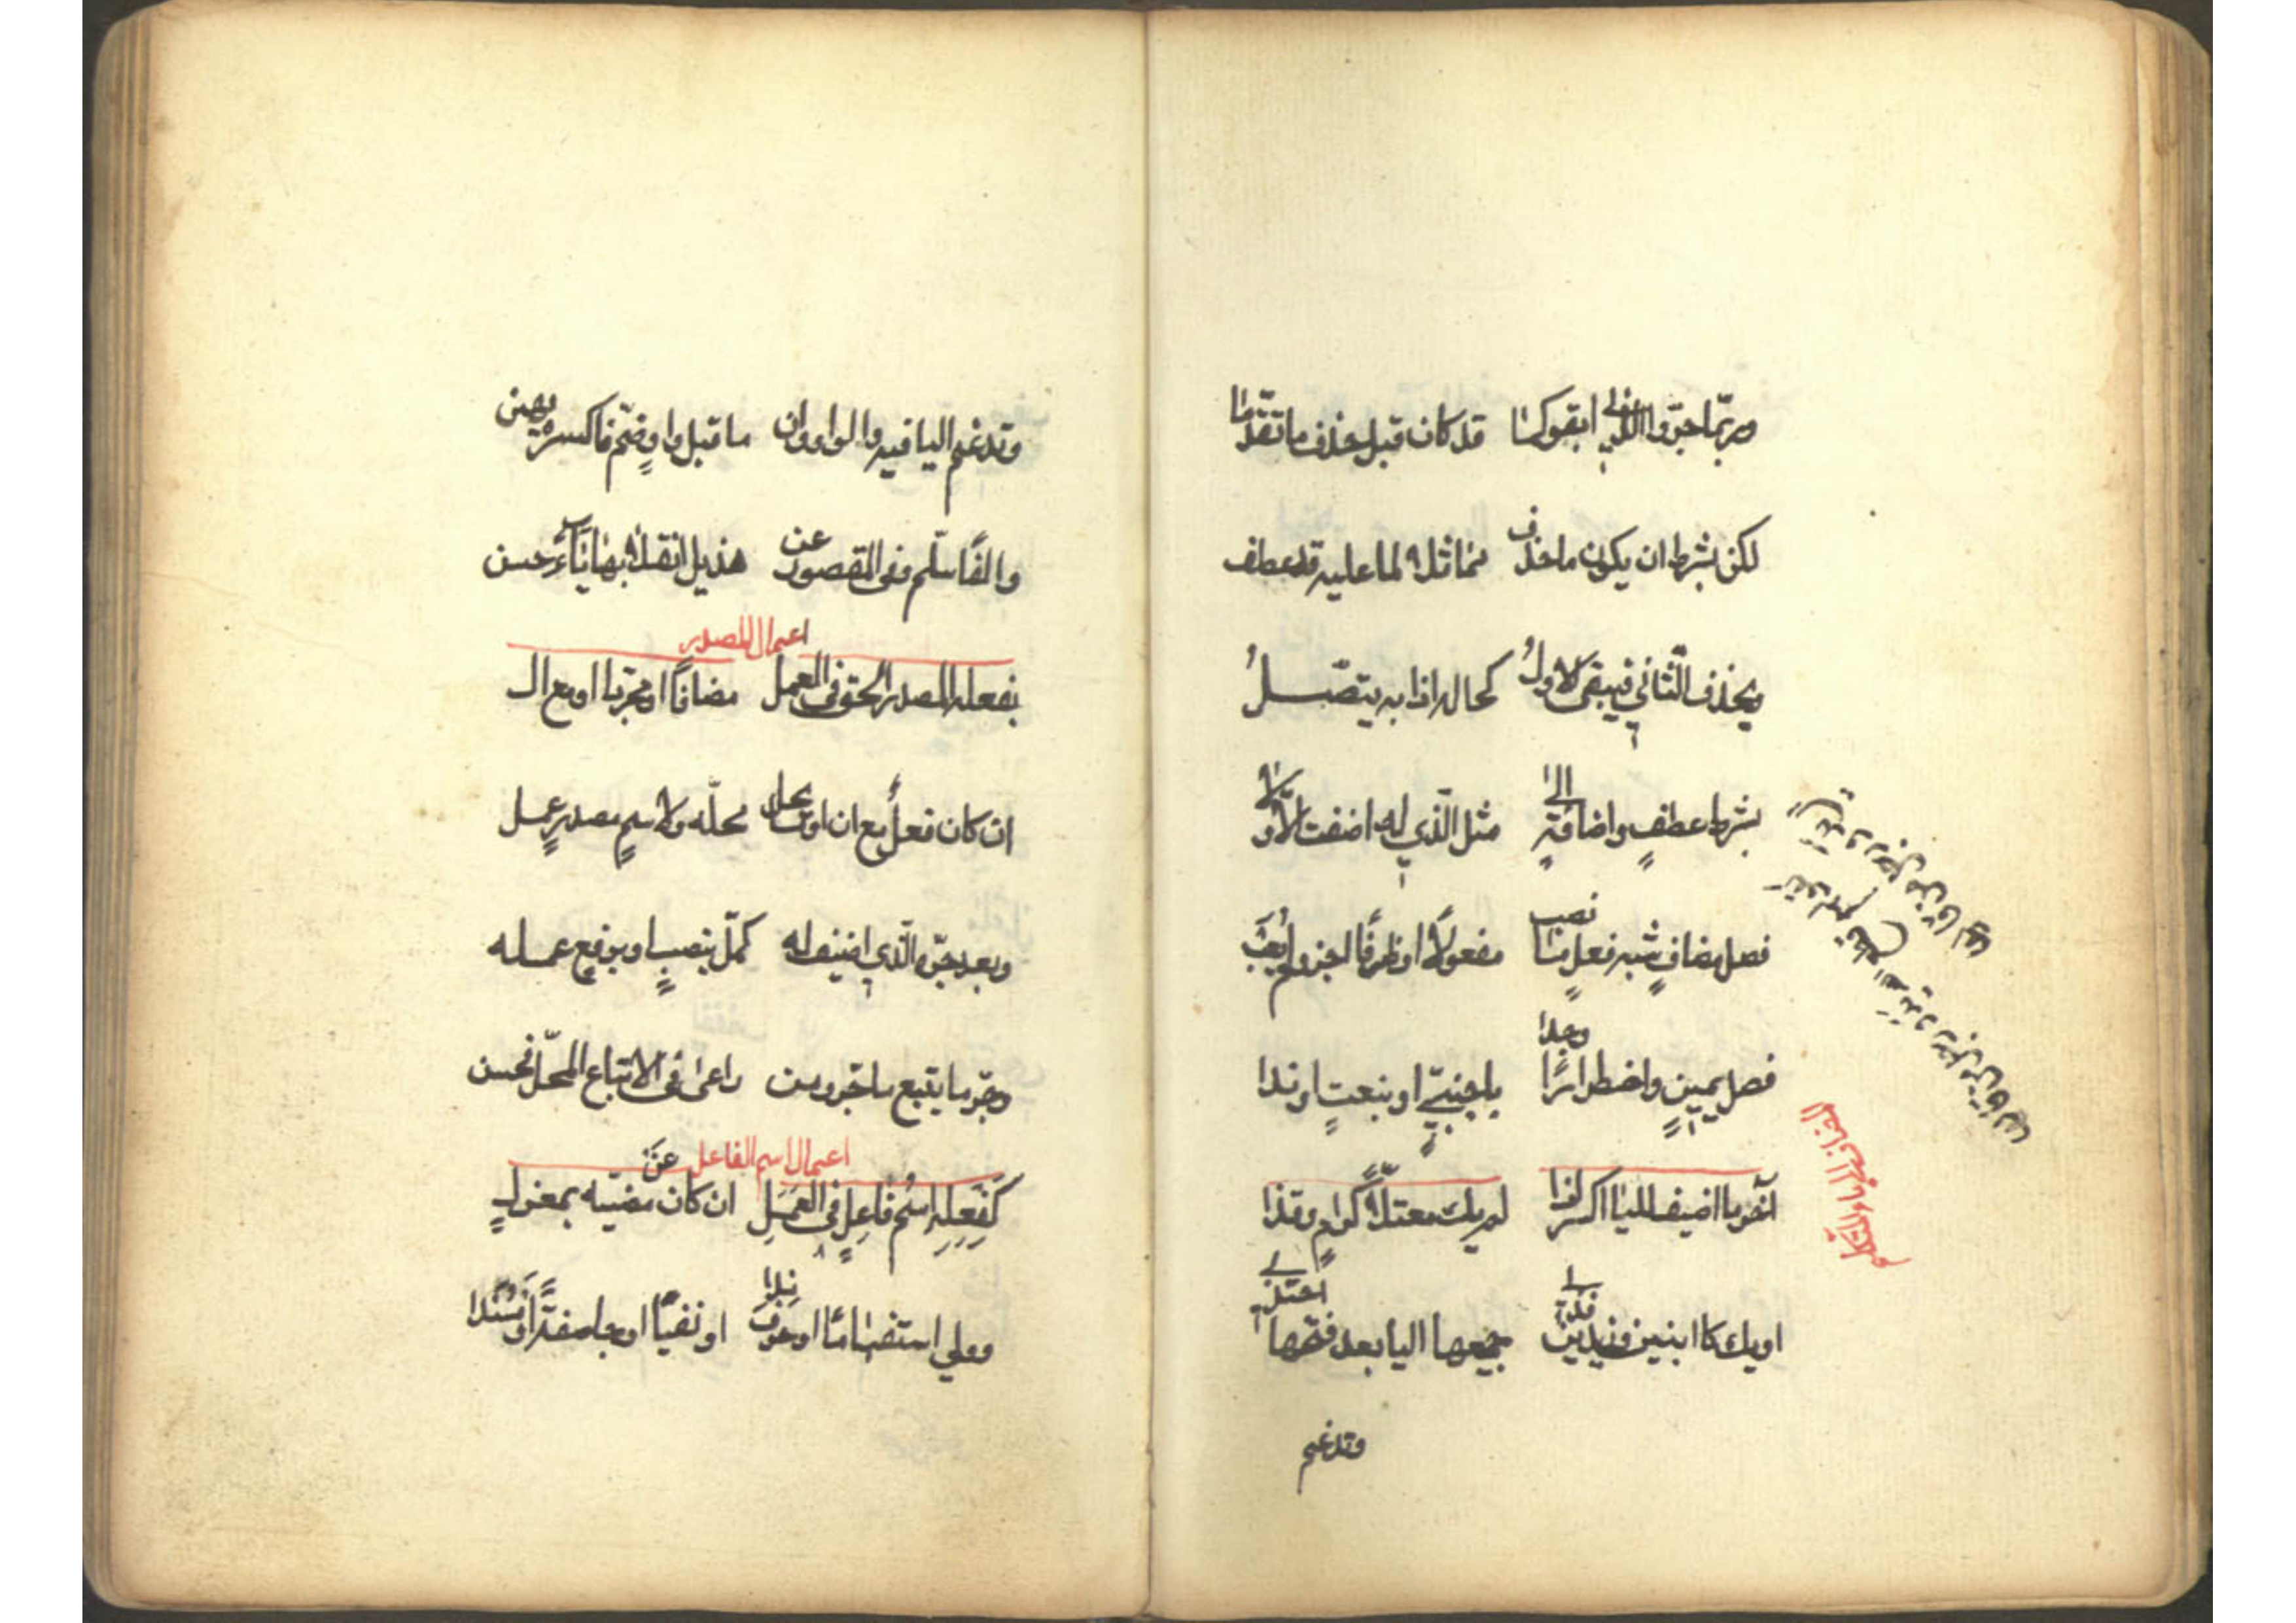 وربّما جرّوا الذي ابقوا كما قد كان قبل حذف ما تقدّما
لكن بشرط ان يكون ما حذف مماثلا لما عليه قد عطف
ويحذف الثّاني فيبقى الاولُ كحاله اذا به يتصّلُ
بشرط عطفٍ واضافةٍ الى مثل الّذي له اضفت الاوّلا
فصل مضافٍ شبه فعلٍ ما نصب مفعولًا او ظرفًا اجز ولم يُعَب
فصل يمينٍ واضطرارًا وجدا باجنبيّ او بنعتٍ او ندا
المضاف الى ياء المتكلم
آخر ما اضيف لليا اكسر اذا لم يك معتلّا كرامٍ وقذا
او يك كابنين وزيدين فذي جميعها اليا بعد فتحها احتذي
وتدغم
وتدغم اليا فيه والواو وان ما قبل واوٍ ضمّ فاكسره يهن
والفًا سلّم وفي المقصور عن هذيل انقلابها ياءً حسن
اعمال المصدر
بفعله المصدر الحق في العمل مضافًا او مجرّدا او مع ال
ان كان فعلٌ مع ان او ما يحل محلّه ولاسمٍ مصدرٍ عمل
وبعد جرّه الّذي اضيف له كمّل بنصبٍ او برفعٍ عمله
وجرّ ما يتبع ما جرّ ومن راعى في الاتباع المحلّ فحسن
اعمال اسم الفاعل
كَفِعلِهِ اسمُ فاعِلٍ في العَمَلِ ان كان عن مضيّه بمعزلٍ
وولي استفهامًا او حرف ندا او نفيًا او جا صفةً او مُسنَدا